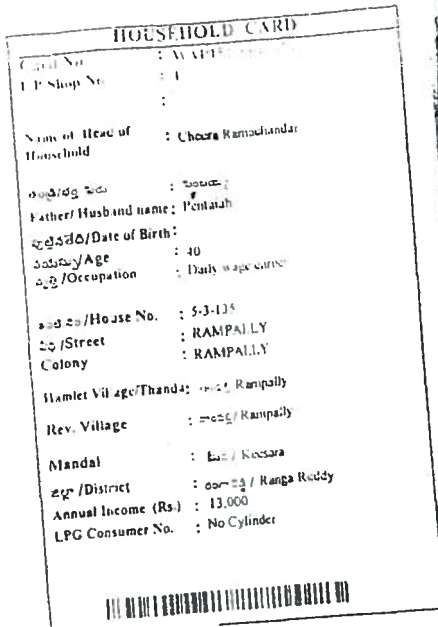 HOUSEHOLD CARD
Card No :
F.P Shop No : 1
:
Name of Head of : Cheera Ramachandar
Household
తండ్రి/భర్త పేరు :
Father/ Husband name : Pentaiah
పుట్టినతేది/Date of Birth :
వయస్సు/Age : 40
వృత్తి /Occupation : Daily wage earner
/House No. : 5-3-135
వీధి /Street : RAMPALLY
Colony : RAMPALLY
Hamlet Village/Thanda: Rampally
Rev. Village : / Rampally
Mandal : / Keesara
జిల్లా /District : / Ranga Reddy
Annual Income (Rs.) : 13,000
LPG Consumer No. : No Cylinder